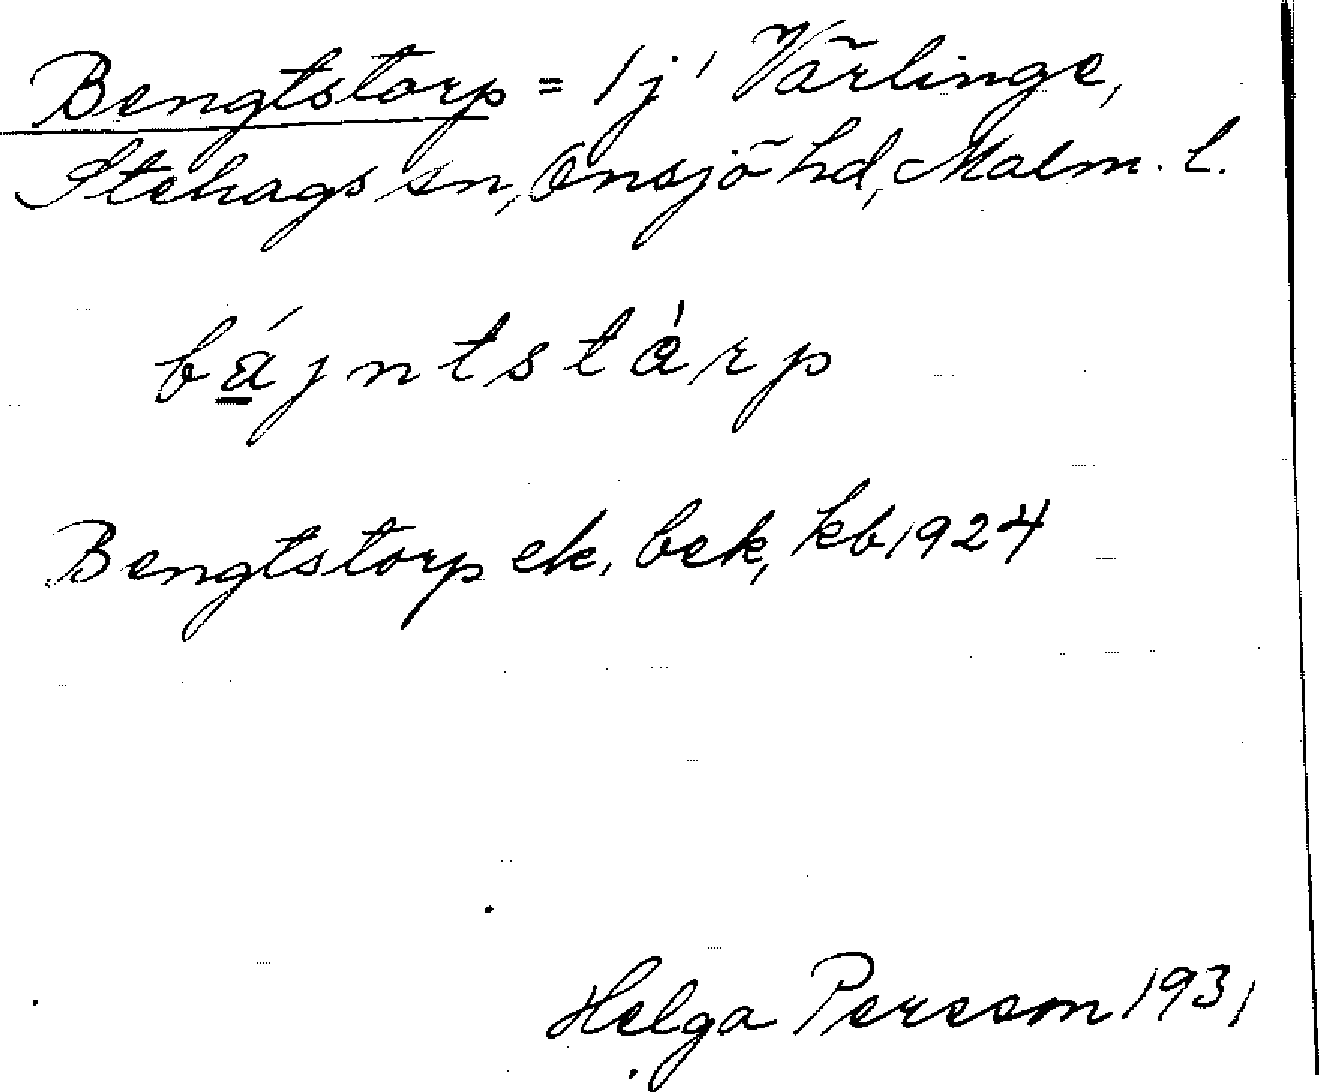 Bengtstorp = 1 j' Värlinge,
Stehags sn, Onsjö hd, Malm. l.
bájntstàrp
Bengtstorp ek, bek, kb 1924
Helga Persson 1931